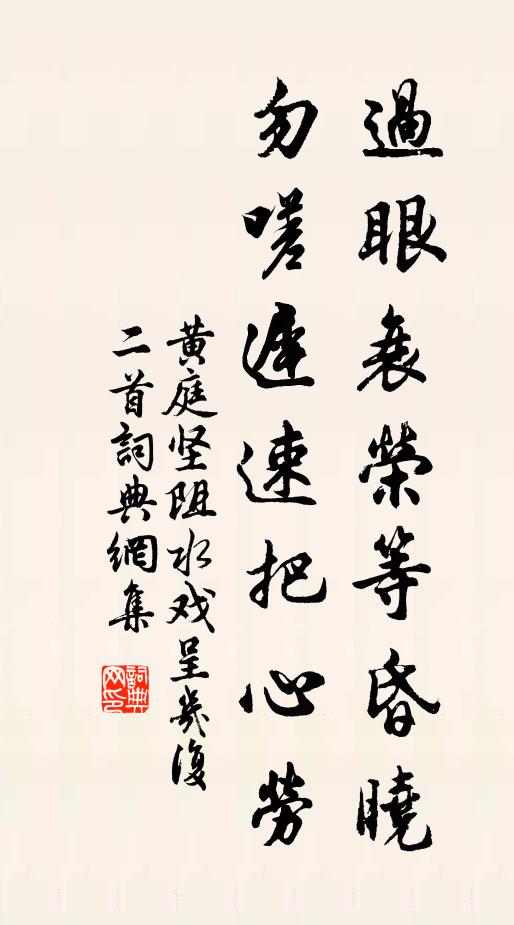 過眼衰榮等昏曉
勿嗟遲速把心勞
黃庭坚阻水戏呈幾復
二首詞典網集
詞典
网印